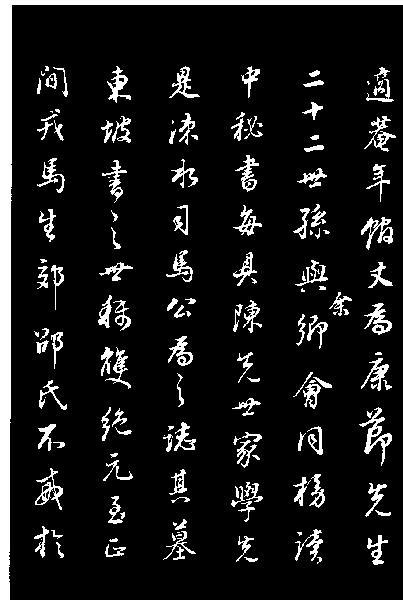 適菴年館丈為康節先生
二十二世孫與余卿會同榜讀
中秘書每具陳先世家學先
是涑水司馬公為之誌其墓
東坡書之世稱雙絕元至正
間戎馬生郊邵氏不戒於